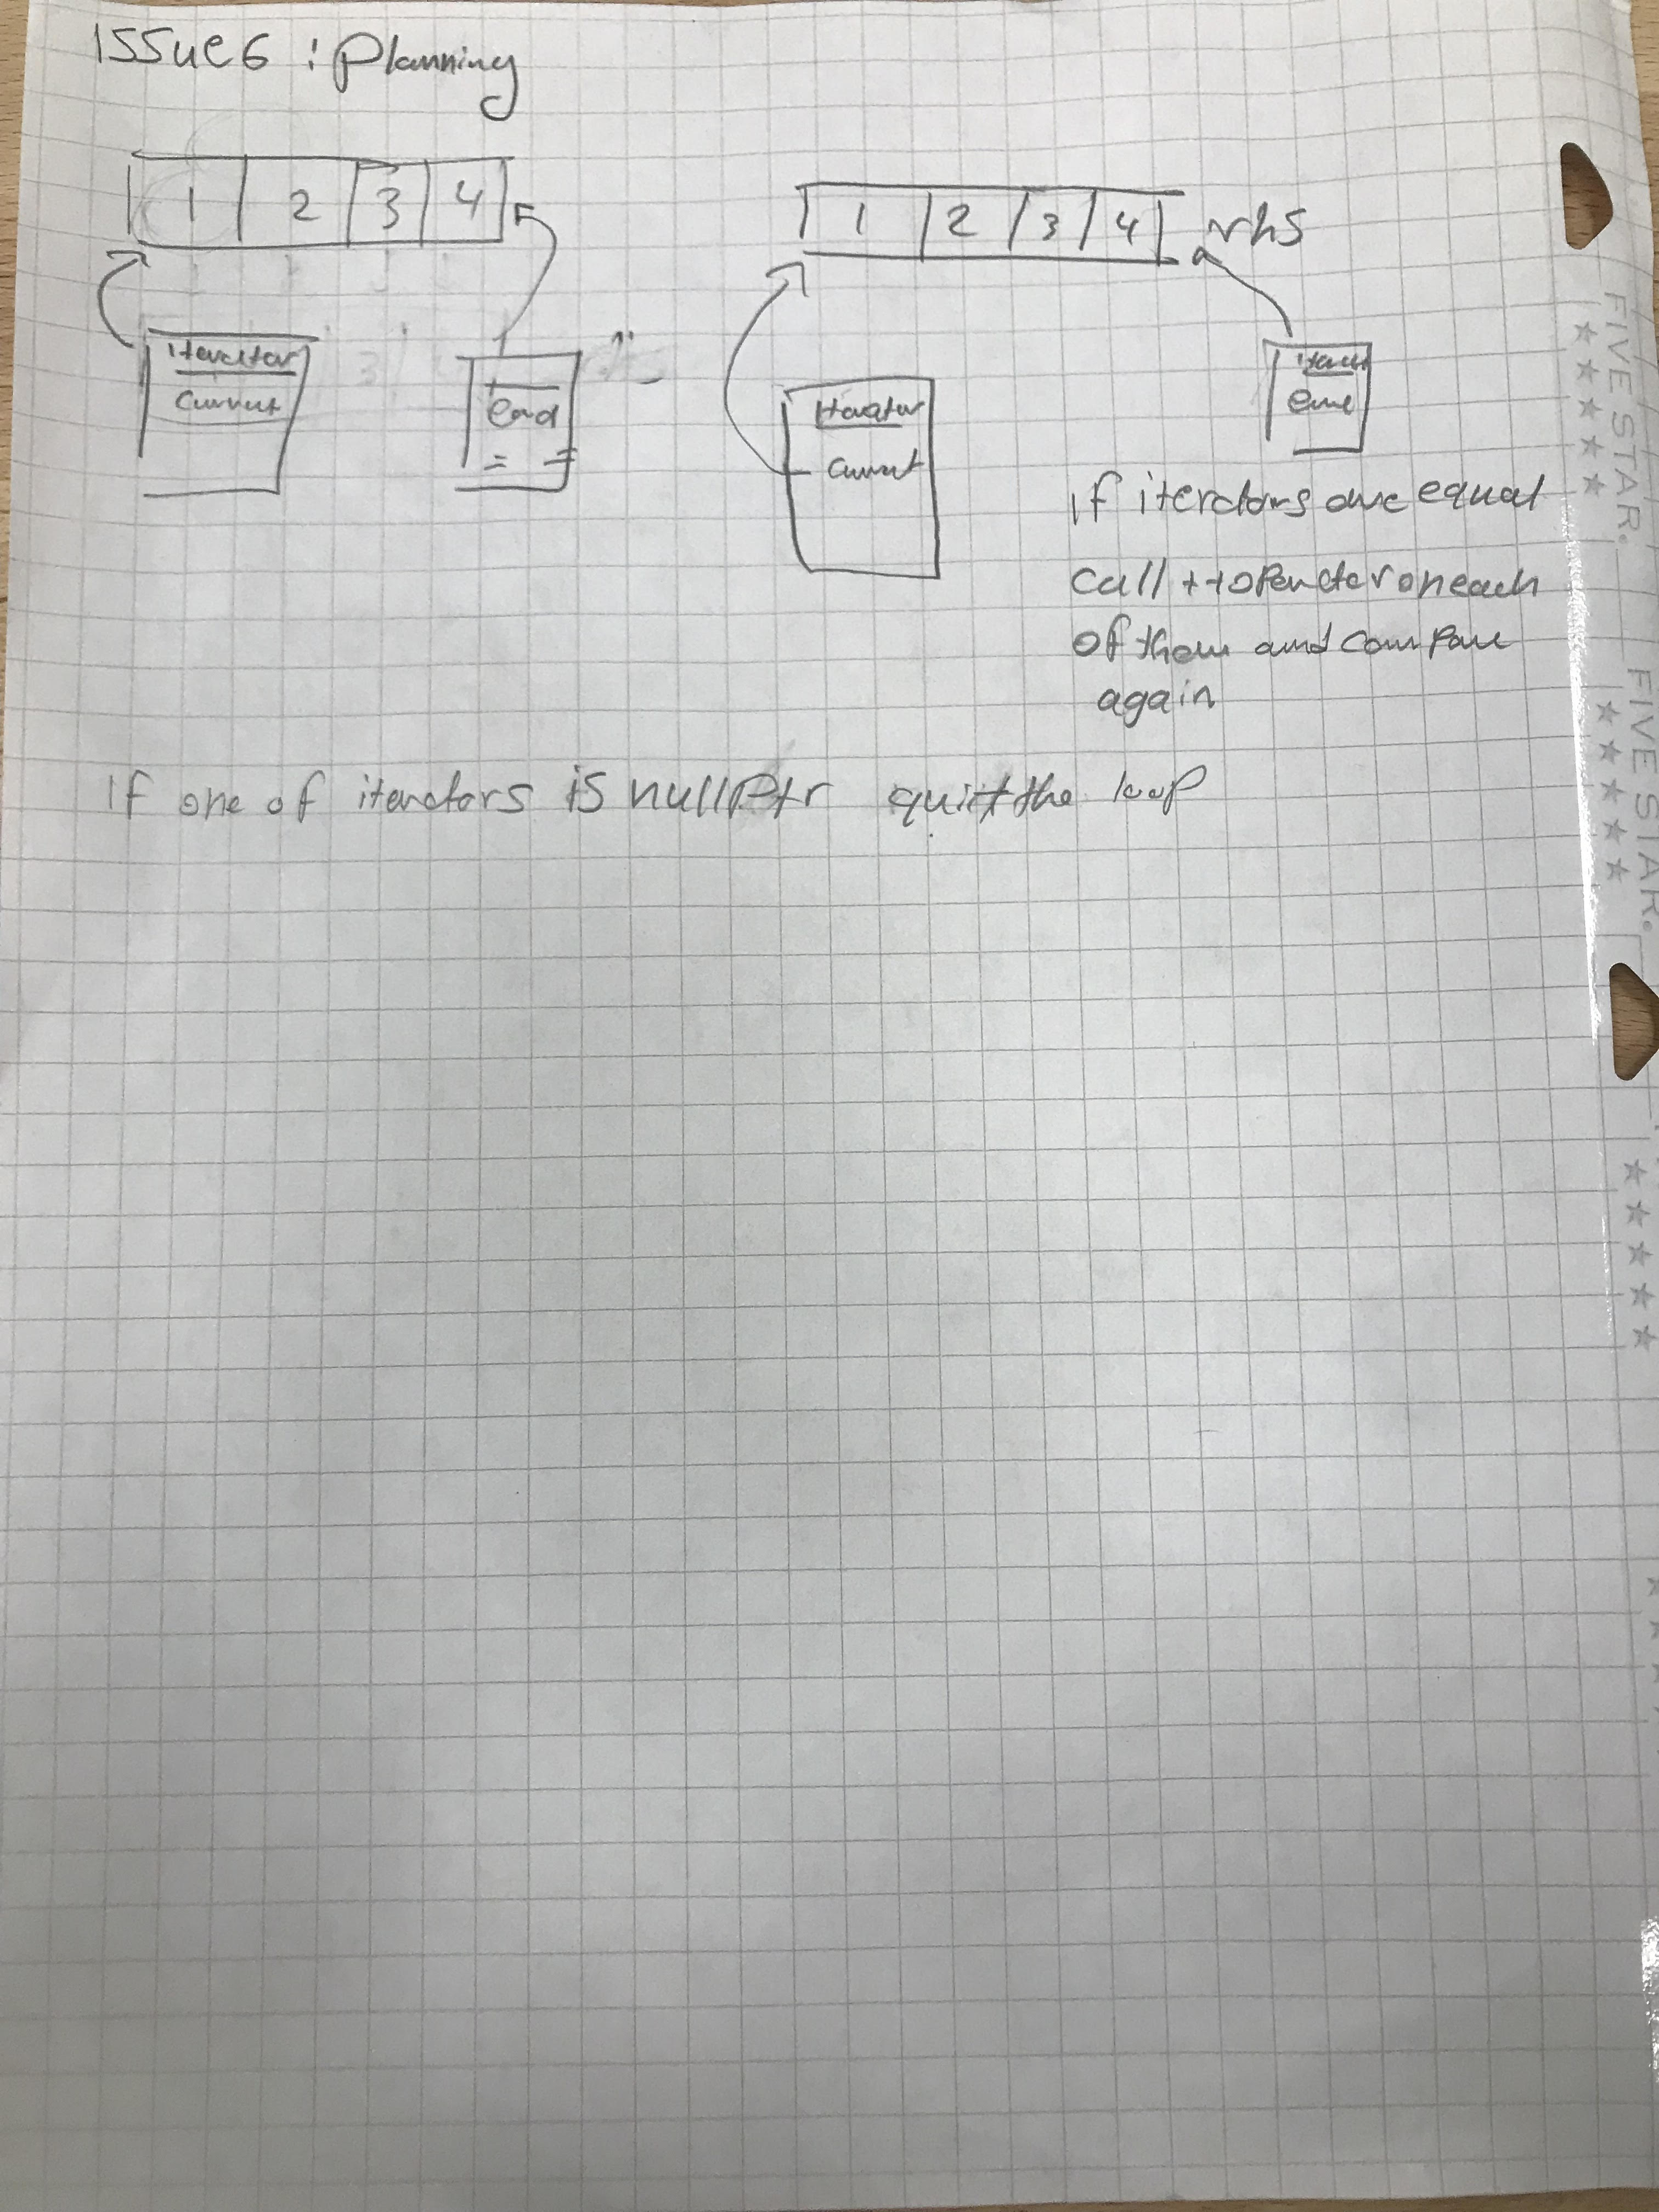 ISSue6 : Planning
1 2 3 4
1 2 3 4 rhs
iterator
current
end
= =
Iterator
current
If iterators are equal
call ++operator on each
of them and compare
again
If one of iterators is nullptr quit the loop
FIVE STAR.
FIVE STAR.